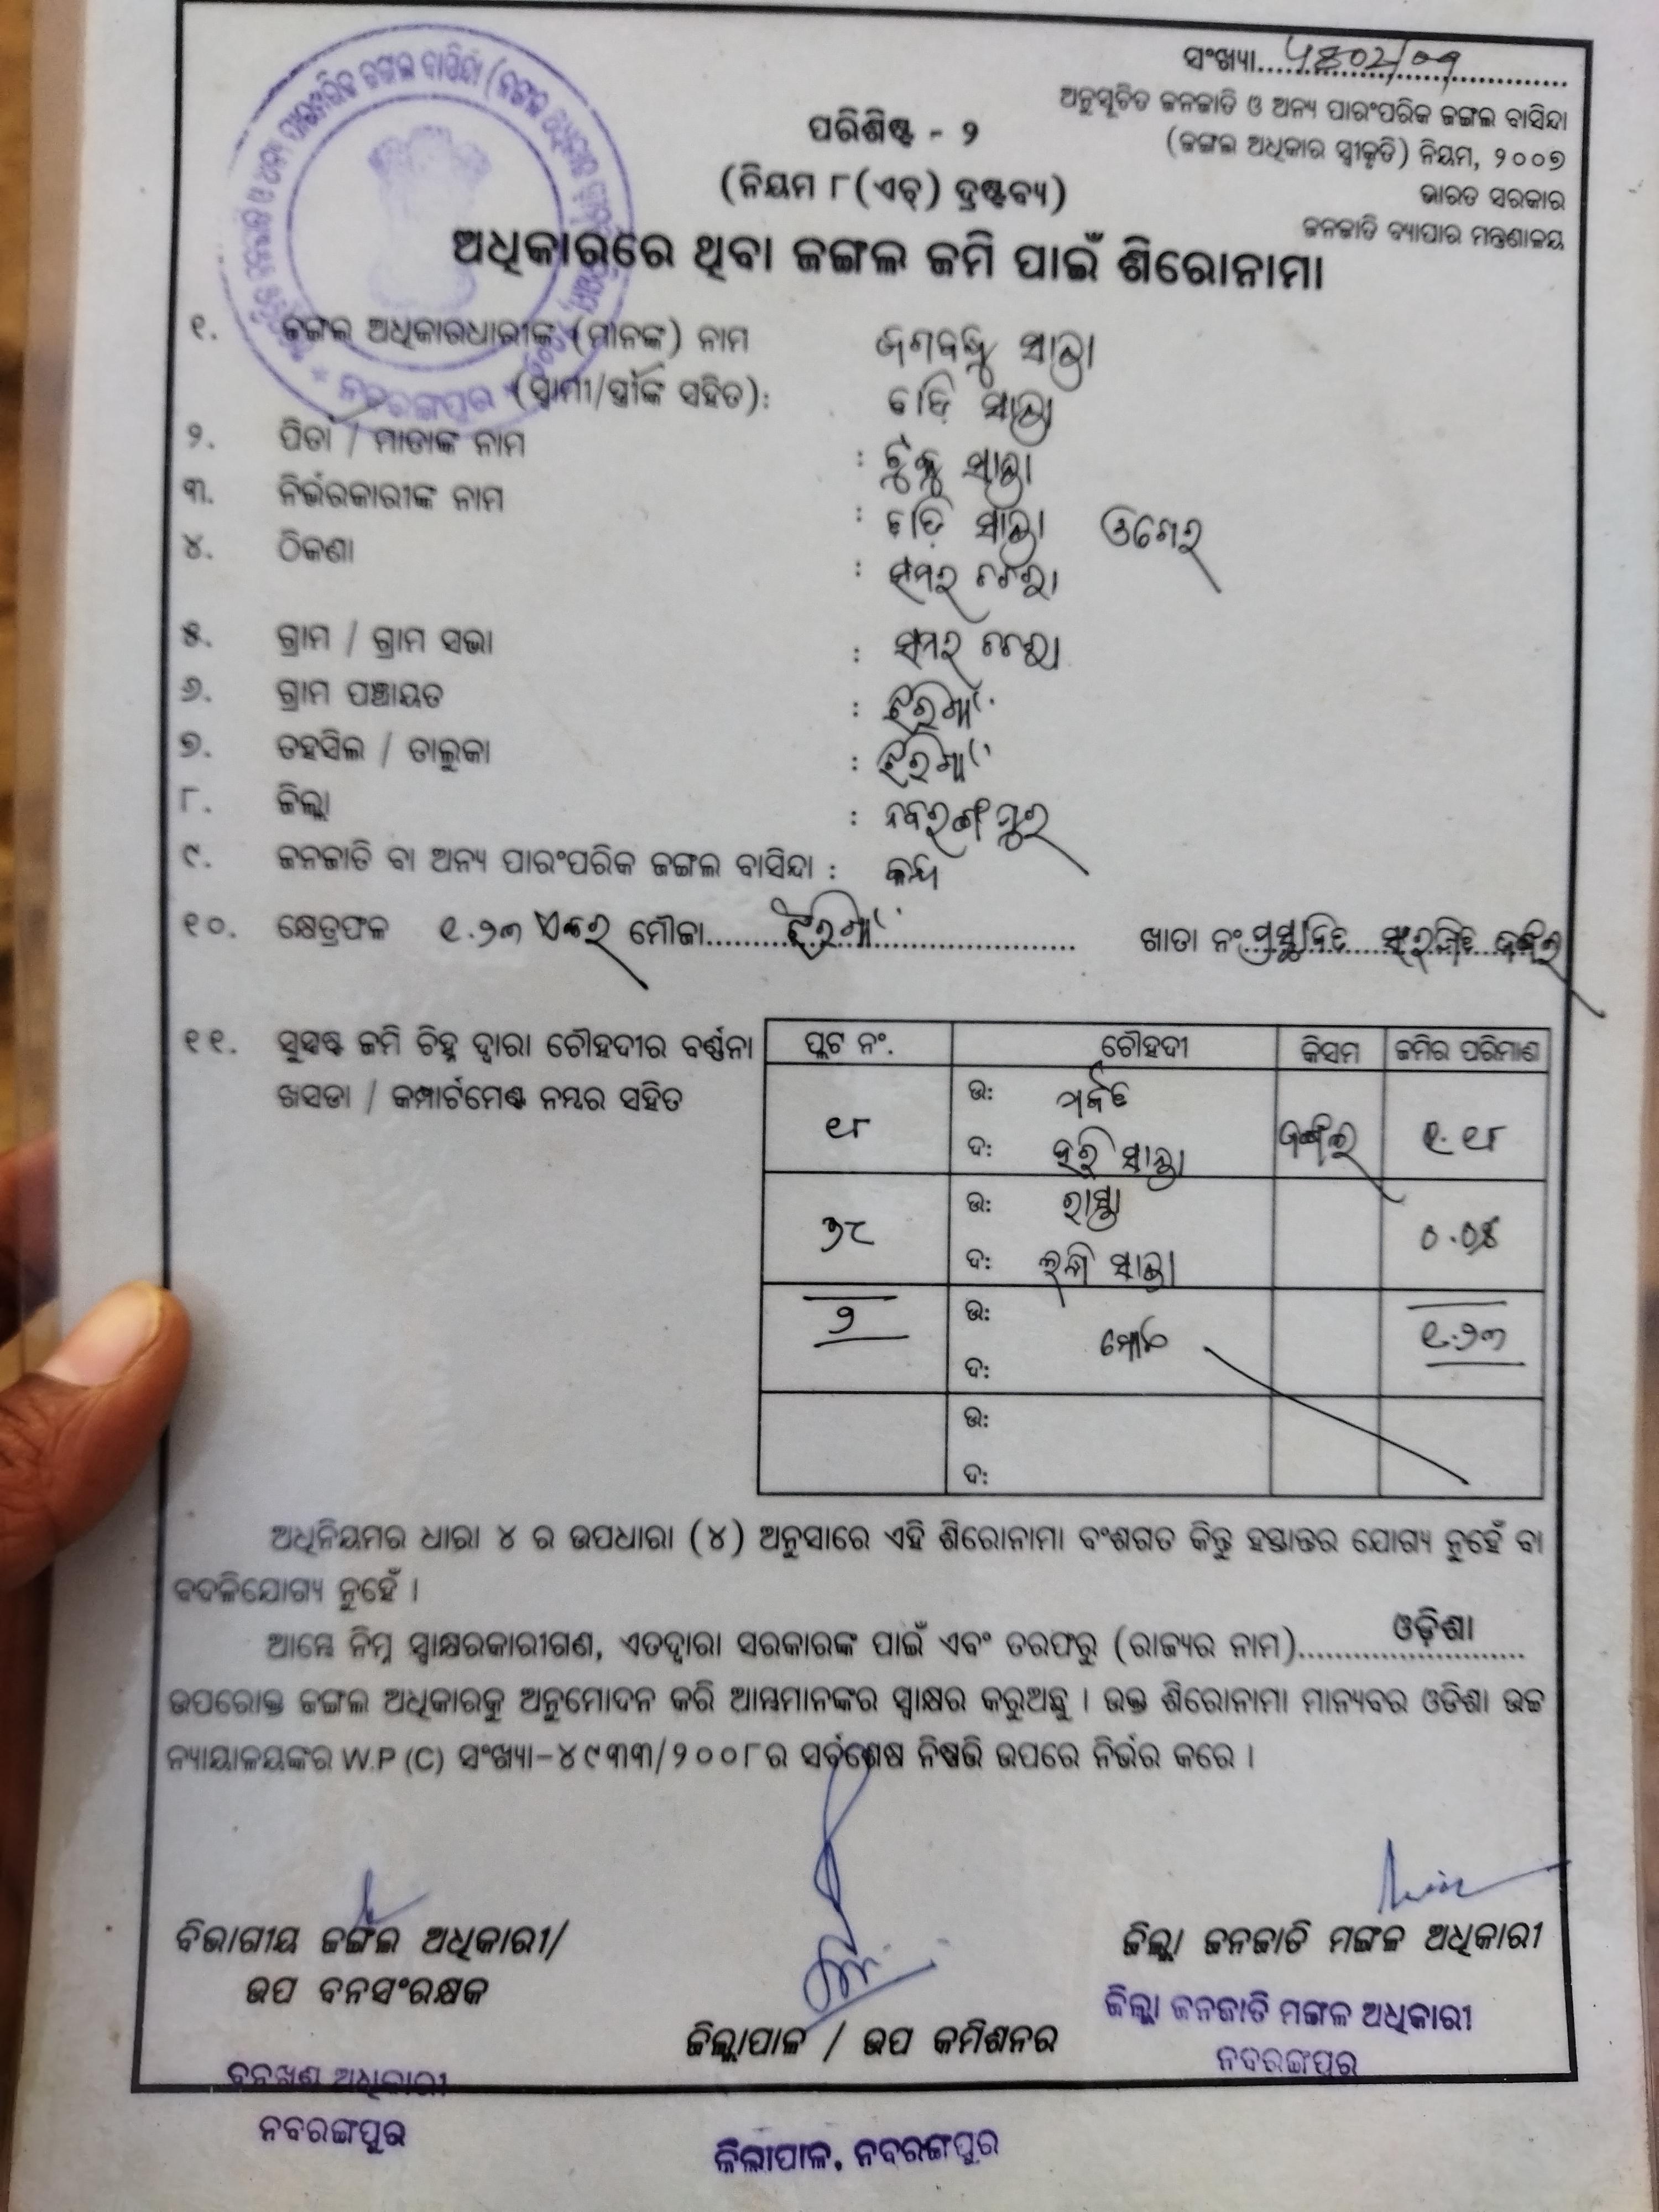 ସଂଖ୍ୟା
ଅନୁସୂଚିତ ଜନଜାତି ଓ ଅନ୍ୟ ପାରଂପରିକ ଜଙ୍ଗଲ ବାସିନ୍ଦା
ପରିଶିଷ୍ଟ - ୨
(ଜଙ୍ଗଲ ଅଧିକାର ସ୍ୱୀକୃତି) ନିୟମ, ୨୦୦୭
(ନିୟମ ୮(ଏଚ୍) ଦ୍ରଷ୍ଟବ୍ୟ)
ଭାରତ ସରକାର
ଜନଜାତି ବ୍ୟାପାର ମନ୍ତ୍ରଣାଳୟ
ଅଧିକାରରେ ଥିବା ଜଙ୍ଗଲ ଜମି ପାଇଁ ଶିରୋନାମା
୧. ଜଙ୍ଗଲ ଅଧିକାରଧାରୀଙ୍କ (ମାନଙ୍କ) ନାମ
(ସ୍ୱାମୀ/ସ୍ତ୍ରୀଙ୍କ ସହିତ):
୨. ପିତା / ମାତାଙ୍କ ନାମ :
୩. ନିର୍ଭରକାରୀଙ୍କ ନାମ :
୪. ଠିକଣା :
୫. ଗ୍ରାମ / ଗ୍ରାମ ସଭା :
୬. ଗ୍ରାମ ପଞ୍ଚାୟତ : ଝରିଗାଁ
୭. ତହସିଲ / ତାଲୁକା : ଝରିଗାଁ
୮. ଜିଲ୍ଲା : ନବରଙ୍ଗପୁର
୯. ଜନଜାତି ବା ଅନ୍ୟ ପାରଂପରିକ ଜଙ୍ଗଲ ବାସିନ୍ଦା :
୧୦. କ୍ଷେତ୍ରଫଳ ୧.୨୩ ଏକର ମୌଜା ଝରିଗାଁ ଖାତା ନଂ ପ୍ରସ୍ତାବିତ ସଂରକ୍ଷିତ ଜଙ୍ଗଲ
୧୧. ସୁସ୍ପଷ୍ଟ ଜମି ଚିହ୍ନ ଦ୍ୱାରା ଚୌହଦୀର ବର୍ଣ୍ଣନା
ଖସଡା / କମ୍ପାର୍ଟମେଣ୍ଟ ନମ୍ବର ସହିତ
ପ୍ଲଟ ନଂ. ଚୌହଦୀ କିସମ ଜମିର ପରିମାଣ
୧୮ ଉ: ପର୍ବତ ଜଙ୍ଗଲ ୧.୧୮
ଦ: ହରି ସାନ୍ତା
ଉ: ରାସ୍ତା ୦.୦୫
ଦ: ସାନ୍ତା
୨ ଉ: ମୋଟ ୧.୨୩
ଦ:
ଉ:
ଦ:
ଅଧିନିୟମର ଧାରା ୪ ର ଉପଧାରା (୪) ଅନୁସାରେ ଏହି ଶିରୋନାମା ବଂଶଗତ କିନ୍ତୁ ହସ୍ତାନ୍ତର ଯୋଗ୍ୟ ନୁହେଁ ବା
ବଦଳିଯୋଗ୍ୟ ନୁହେଁ ।
ଆମ୍ଭେ ନିମ୍ନ ସ୍ୱାକ୍ଷରକାରୀଗଣ, ଏତଦ୍ୱାରା ସରକାରଙ୍କ ପାଇଁ ଏବଂ ତରଫରୁ (ରାଜ୍ୟର ନାମ) ଓଡ଼ିଶା
ଉପରୋକ୍ତ ଜଙ୍ଗଲ ଅଧିକାରକୁ ଅନୁମୋଦନ କରି ଆମ୍ଭମାନଙ୍କର ସ୍ୱାକ୍ଷର କରୁଅଛୁ । ଉକ୍ତ ଶିରୋନାମା ମାନ୍ୟବର ଓଡିଶା ଉଚ୍ଚ
ନ୍ୟାୟାଳୟଙ୍କର W.P (C) ସଂଖ୍ୟା-୪୯୩୩/୨୦୦୮ର ସର୍ବଶେଷ ନିଷ୍ପତ୍ତି ଉପରେ ନିର୍ଭର କରେ ।
ବିଭାଗୀୟ ଜଙ୍ଗଲ ଅଧିକାରୀ/
ଉପ ବନସଂରକ୍ଷକ
ବନଖଣ୍ଡ ଅଧିକାରୀ
ନବରଙ୍ଗପୁର
ଜିଲ୍ଲାପାଳ / ଉପ କମିଶନର
ଜିଲ୍ଲାପାଳ, ନବରଙ୍ଗପୁର
ଜିଲ୍ଲା ଜନଜାତି ମଙ୍ଗଳ ଅଧିକାରୀ
ଜିଲ୍ଲା ଜନଜାତି ମଙ୍ଗଳ ଅଧିକାରୀ
ନବରଙ୍ଗପୁର